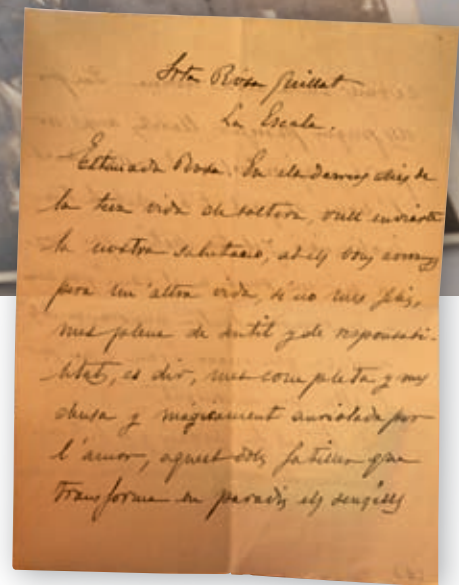 Srta Rosa Guillat
La Escala.
Estimada Rosa: En els darrers dias de
la teva vida de soltera, vull enviarte
la nostra salutació, ab els bons
pera un' altra vida, si no mes felis,
mes plena de sentit y de responsabi-
litat, es dir, mes completa y mes
densa y mágicament auriolada por
l' amor, aquest dols fatiller que
transforma en paradis els senzills